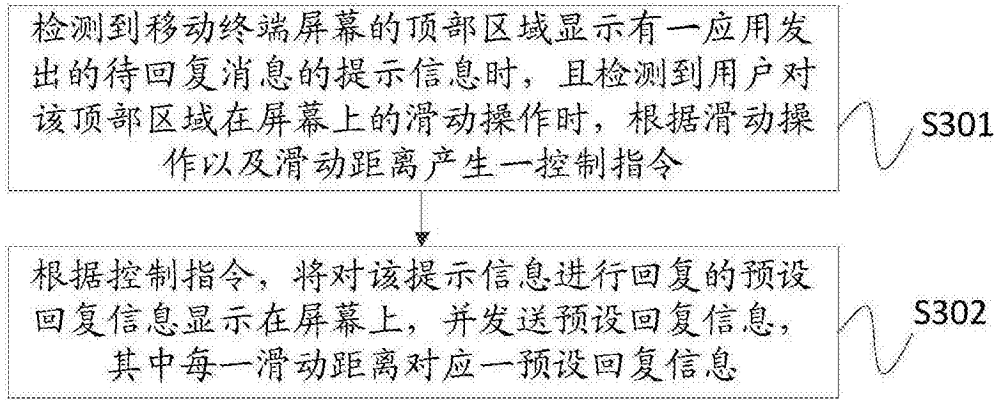 检测到移动终端屏幕的顶部区域显示有一应用发
出的待回复消息的提示信息时，且检测到用户对
该顶部区域在屏幕上的滑动操作时，根据滑动操
作以及滑动距离产生一控制指令
S301
根据控制指令，将对该提示信息进行回复的预设
回复信息显示在屏幕上，并发送预设回复信息，
其中每一滑动距离对应一预设回复信息
S302